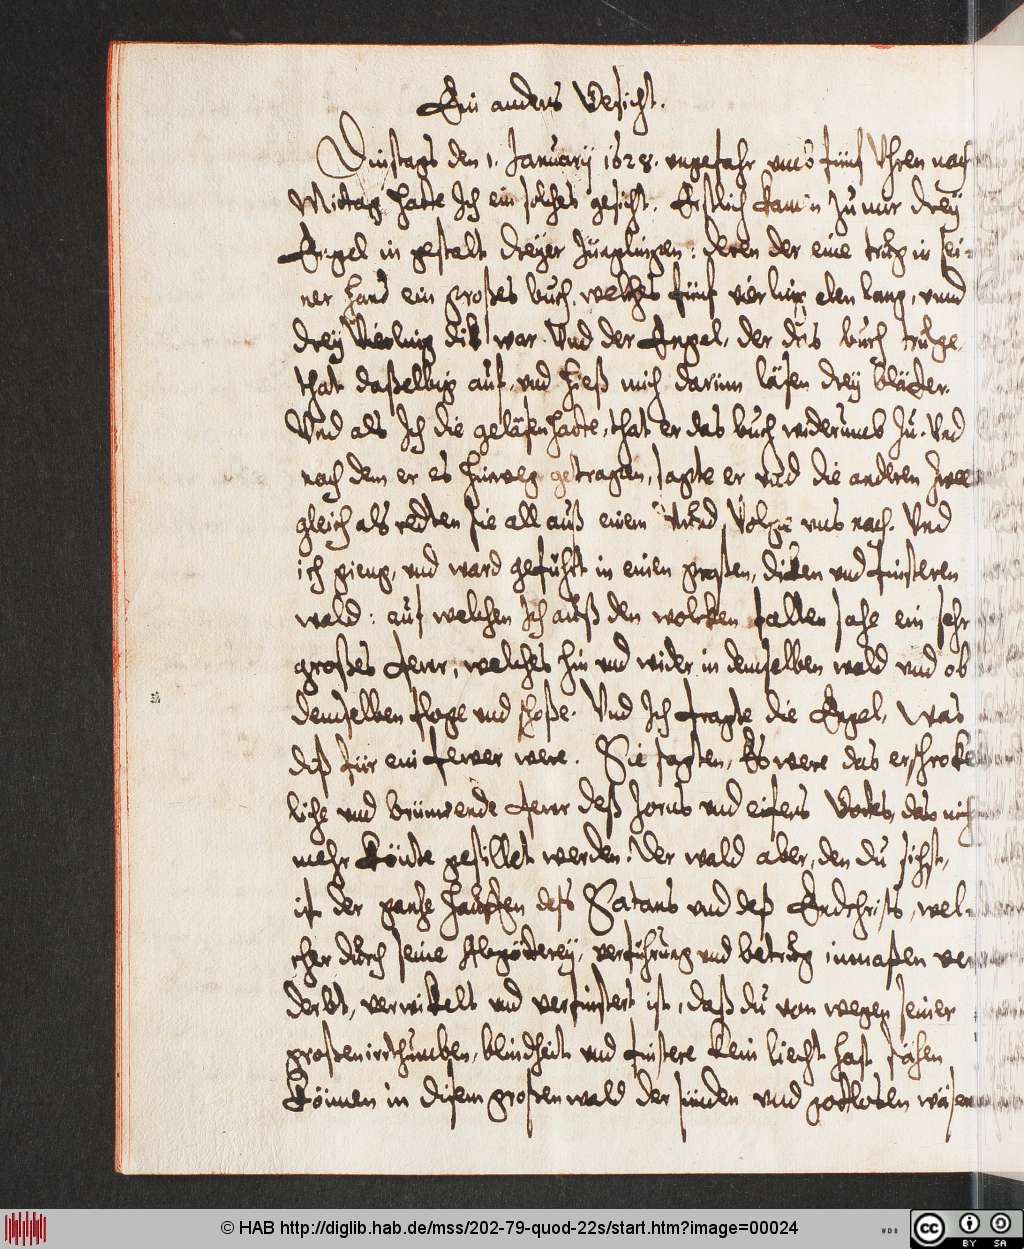 Ein anders Gesicht.
Dinstags den 1. Januarij 1628. vngefahr vmb fünf Vhren nach
Mittag hatte Ich ein solches gesicht. Erstlich kamen zu mir dreÿ
Engel in gestalt dreÿer Jünglingen: deren der eine trug in sei-
ner hand ein großes buch, welches fünf vierling elen lang, vnnd
dreÿ Vierling dik war. Vnd der Engel, der das buch truge
that daßelbig auf, vnd hieß mich darinn läsen dreÿ blätter.
Vnd als Ich die geläsen hatte, that er das buch widerumb zu. Vnd
nach dem er es hinweg getragen, sagte er vnd die anderen zwee
gleich als redten sie all auß einem Mund, Volge vns nach. Vnd
ich gieng, vnd ward geführt in einen großen, diken vnd finsteren
wald: auf welchen Ich auß den wolcken fallen sahe ein sehr
großes fewr, welches hin vnd wider in demselben wald vnd ob
demselben floge vnd schoße. Vnd Ich fragte die Engel, Was
diß für ein fewer were. Sie sagten, Es were das erschroke
liche vnd brünnende fewr deß Zorns vnd eifers Gottes, das nich
mehr könte gestillet werden. Der wald aber, den du sihst,
ist der gantze hauffen deß Satans vnd deß Endchrists, wel-
cher durch seine Abgötterey, verführung vnd betrug inmaßen ver
derbt, verwikelt vnd verfinstert ist, daß du von wegen seiner
großen irrthumben, blindheit vnd finstere kein liecht hast sähen
können in disem großen wald der sünden vnd gottlosen wäsen
© HAB http://diglib.hab.de/mss/202-79-quod-22s/start.htm?image=00024
WDB
cc BY SA